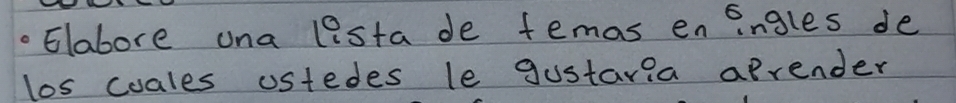 • Elabore una lista de temas en ingles de
los cuales ustedes le gustaria aprender